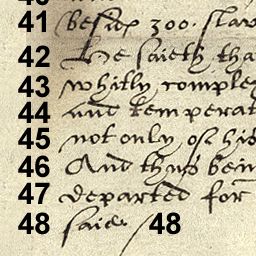 41 besides 300. slav
42 He saieth tha
43 whitly complex
44 and temperat
45 not only of his
46 And thus bein
47 departed for
48 saie 48